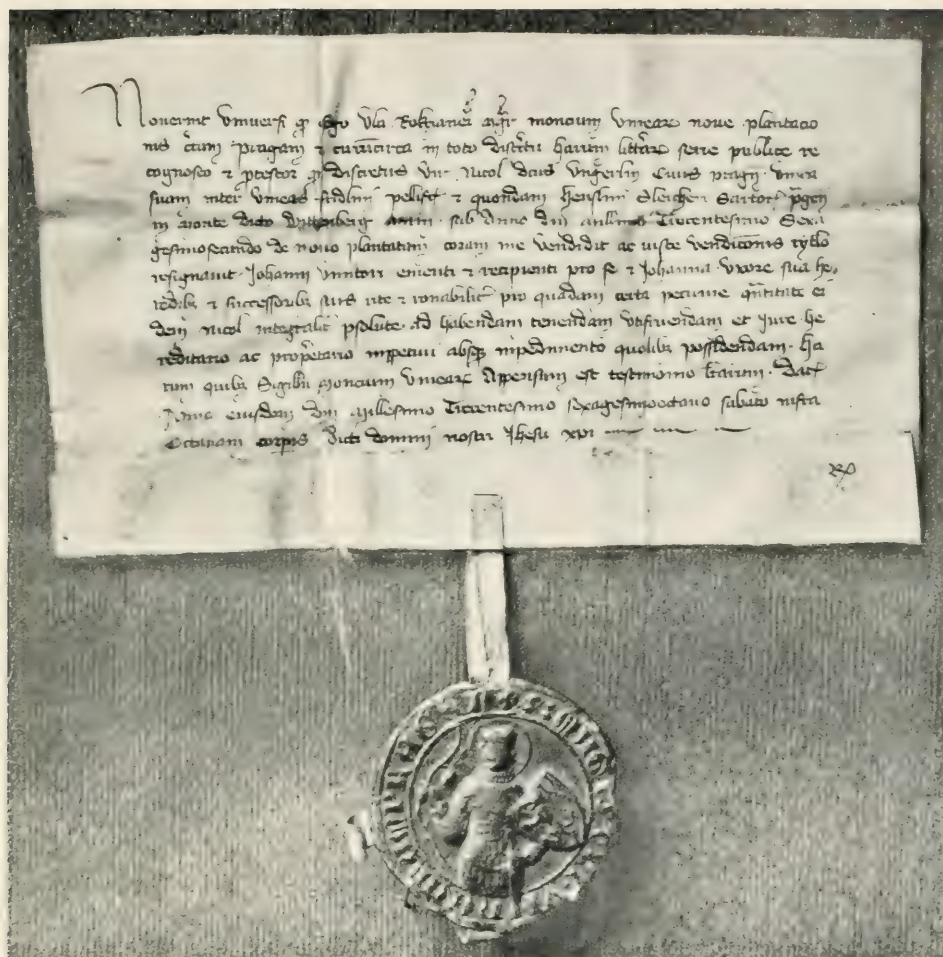 Noverint Universi q̄ Ego Ulr̄ Rokczaner mgr̄ moncium vineaR nove plantacio
nis circum pragam & circumcirca in toto districtu harum litterar serie publice re
cognosco & protestor q̄ discretus vir Nicol dcus Ungerlin Civis pragn̄ vineā
suam inter vineas fridlini pelific̄ & quondam Henslini Sleicher Sartor̄ pragn̄
in monte dicto sub Anno dn̄i millmo Tricentesimo Sexa
gesimosecundo de novo plantatam coram me vendidit ac iuste vendicionis tytlo
resignavit Johanni vinitori ementi & recipienti pro se & Johanna uxore sua he-
redib₃ & successorib₃ suis rite & ronabilit̄ pro quadam certa pecunie qn̄titate ei
dem Nicol integralit̄ psolute · Ad habendam tenendam utifruendam et Jure he
reditario ac proprietario inppetuū absq₃ inpedimento quolib₃ possidendam · Ha
rum quib₃ Sigillū moncium vineaR Appensum est testimonio lrarum · Dat̄
Anno eiusdem dn̄i Millesimo Tricentesimo sexagesimooctavo sabbato infra
Octavam corpis dicti domini nostri Jhesu xpi